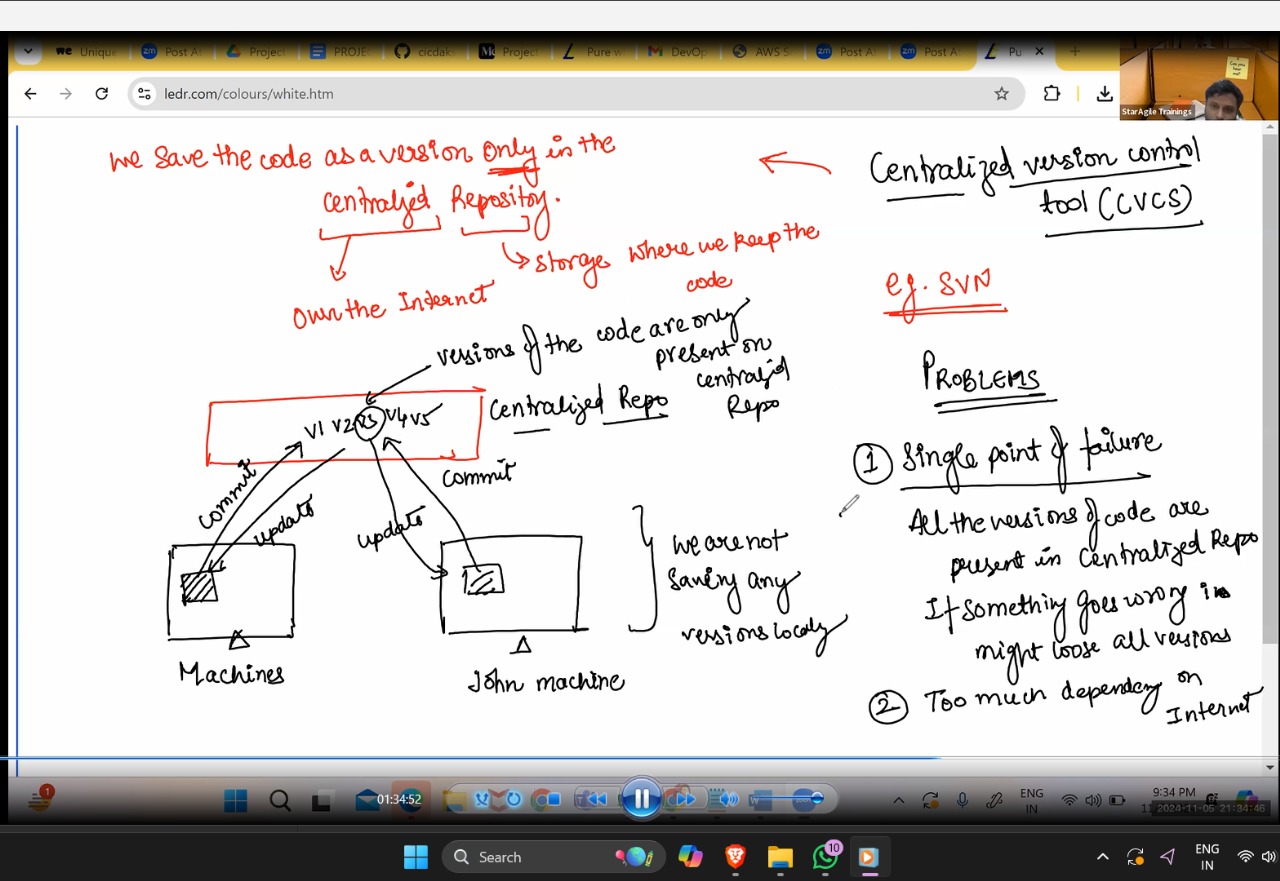 Unique
Post A
Project
PROJE
cicdak
Project
Pure w
DevOp
AWS S
Post A
Post A
Pu
ledr.com/colours/white.htm
StarAgile Trainings
we save the code as a version only in the
centralized Repository.
storage where we keep the
code
Own the Internet
Centralized version control
tool (CVCS)
eg. SVN
versions of the code are only
present on
centralized
Repo
V1 V2 V3 V4 V5
Centralized Repo
commit
update
update
commit
Machines
John machine
we are not
saving any
versions localy
PROBLEMS
1 Single point of failure
All the versions of code are
present in Centralized Repo
If something goes wrong in
might loose all versions
2 Too much dependency on
Internet
1
01:34:52
ENG
IN
9:34 PM
2024-11-05 21:34:46
Search
10
ENG
IN